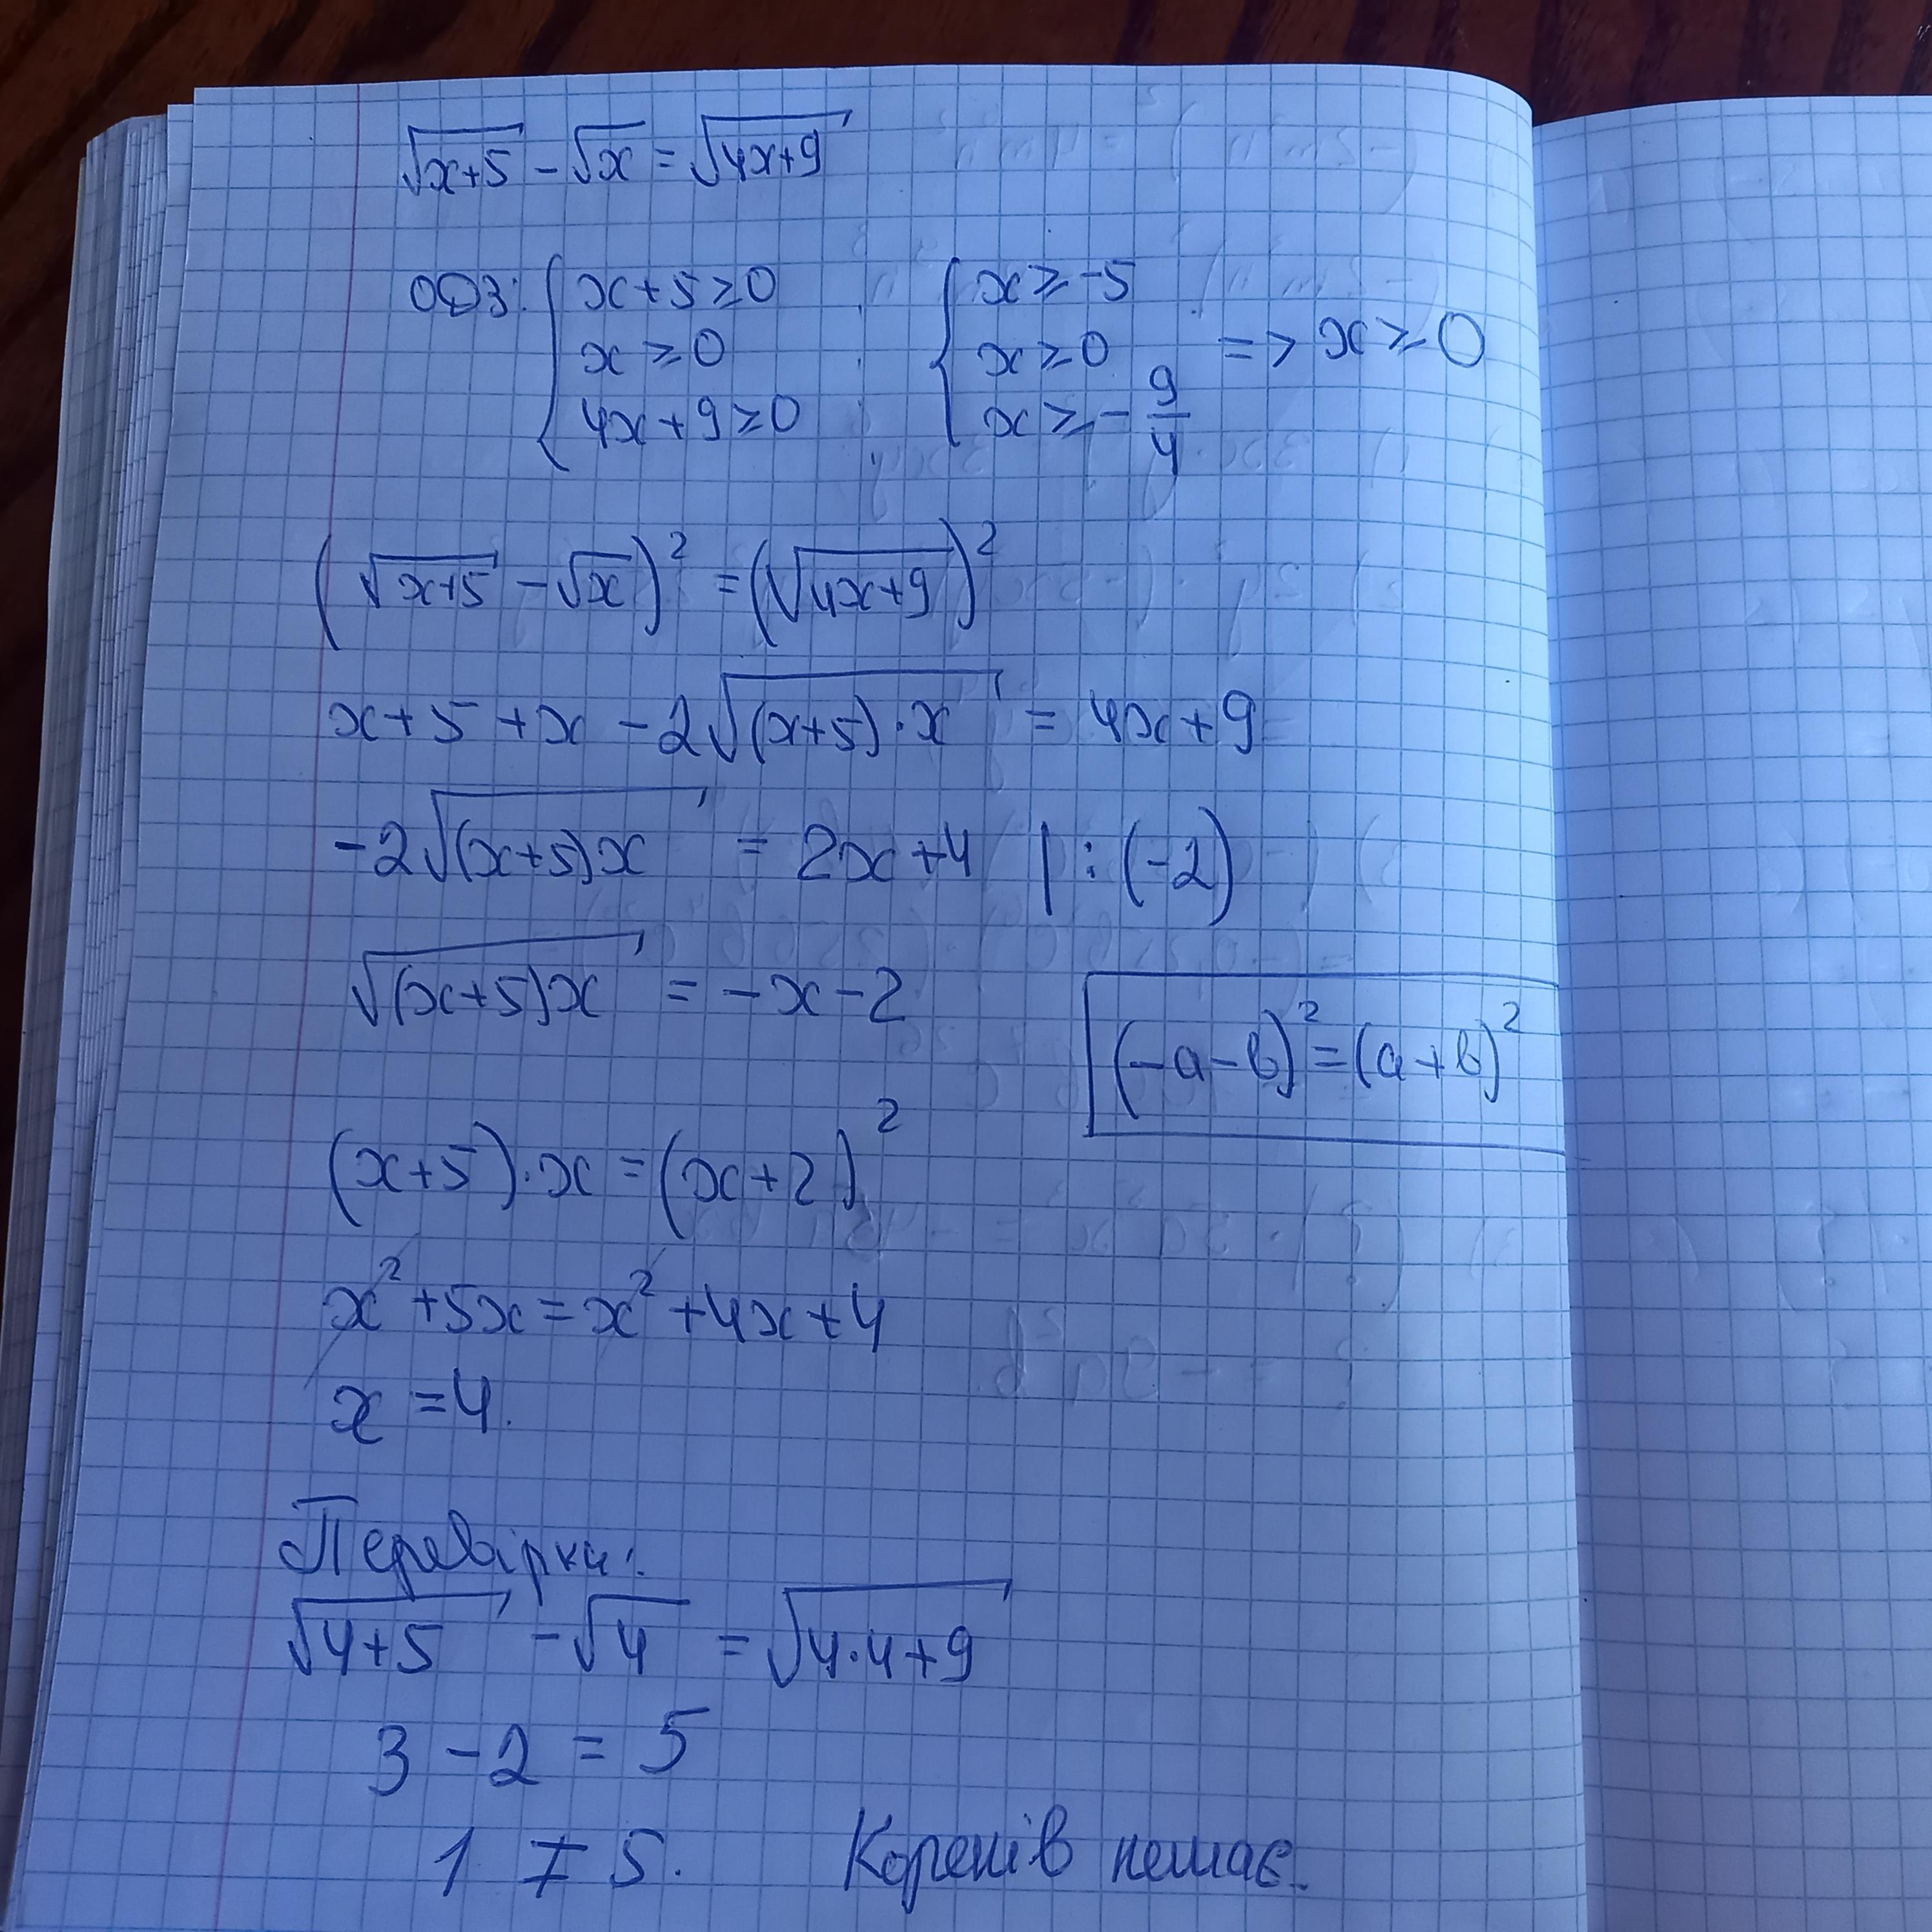 √(x+5) - √x = √(4x+9)
ОДЗ: { x+5 ≥ 0 { x ≥ -5
x ≥ 0 x ≥ 0 => x ≥ 0
4x+9 ≥ 0 x ≥ - 9/4
(√(x+5) - √x)² = (√(4x+9))²
x+5+x - 2√((x+5)·x) = 4x+9
-2√((x+5)x) = 2x+4 | : (-2)
√((x+5)x) = -x-2
(-a-b)² = (a+b)²
(x+5)·x = (x+2)²
x²+5x = x²+4x+4
x = 4.
Перевірка:
√(4+5) - √4 = √(4·4+9)
3 - 2 = 5
1 ≠ 5. Коренів немає.